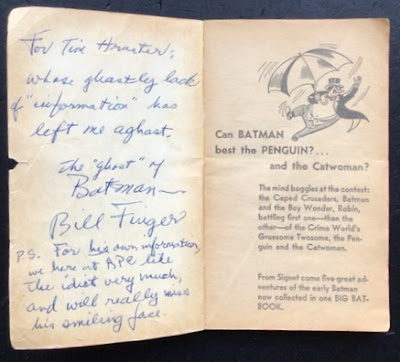 For Tim Hraster:
whose ghastly lack
of "information" has
left me aghast.
The "ghost" of
Batman—
Bill Finger
P.S. For his own information,
we here at APC like
the idiot very much,
and will really miss
his smiling face.
Can BATMAN
best the PENGUIN?...
and the Catwoman?
The mind boggles at the contest:
the Caped Crusaders, Batman
and the Boy Wonder, Robin,
battling first one—then the
other—of the Crime World's
Gruesome Twosome, the Pen-
guin and the Catwoman.
From Signet come five great ad-
ventures of the early Batman
now collected in one BIG BAT-
BOOK.